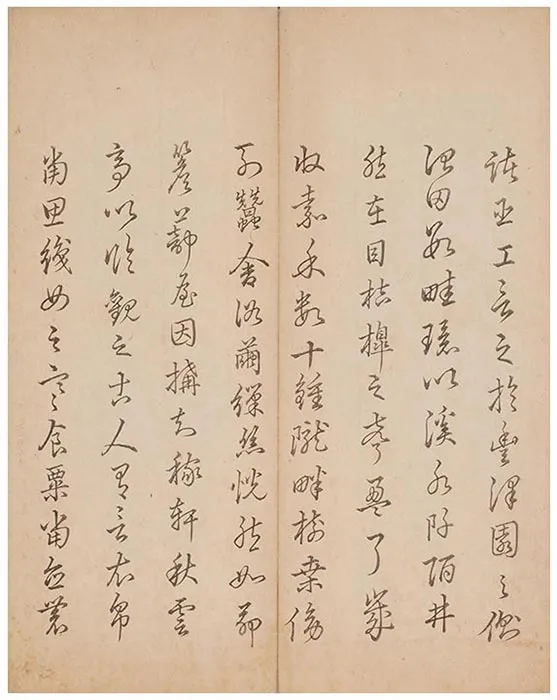 諸臣工言之於豐澤園之側
治田數畦環以溪水阡陌井
然在目桔槔之聲盈耳歲
收嘉禾數十鍾隴畔樹桑傍
列蠶舍浴繭繅絲恍然如茆
簷蔀屋因搆知稼軒秋雲
亭以臨觀之古人有言衣帛
當思織女之寒食粟當念農